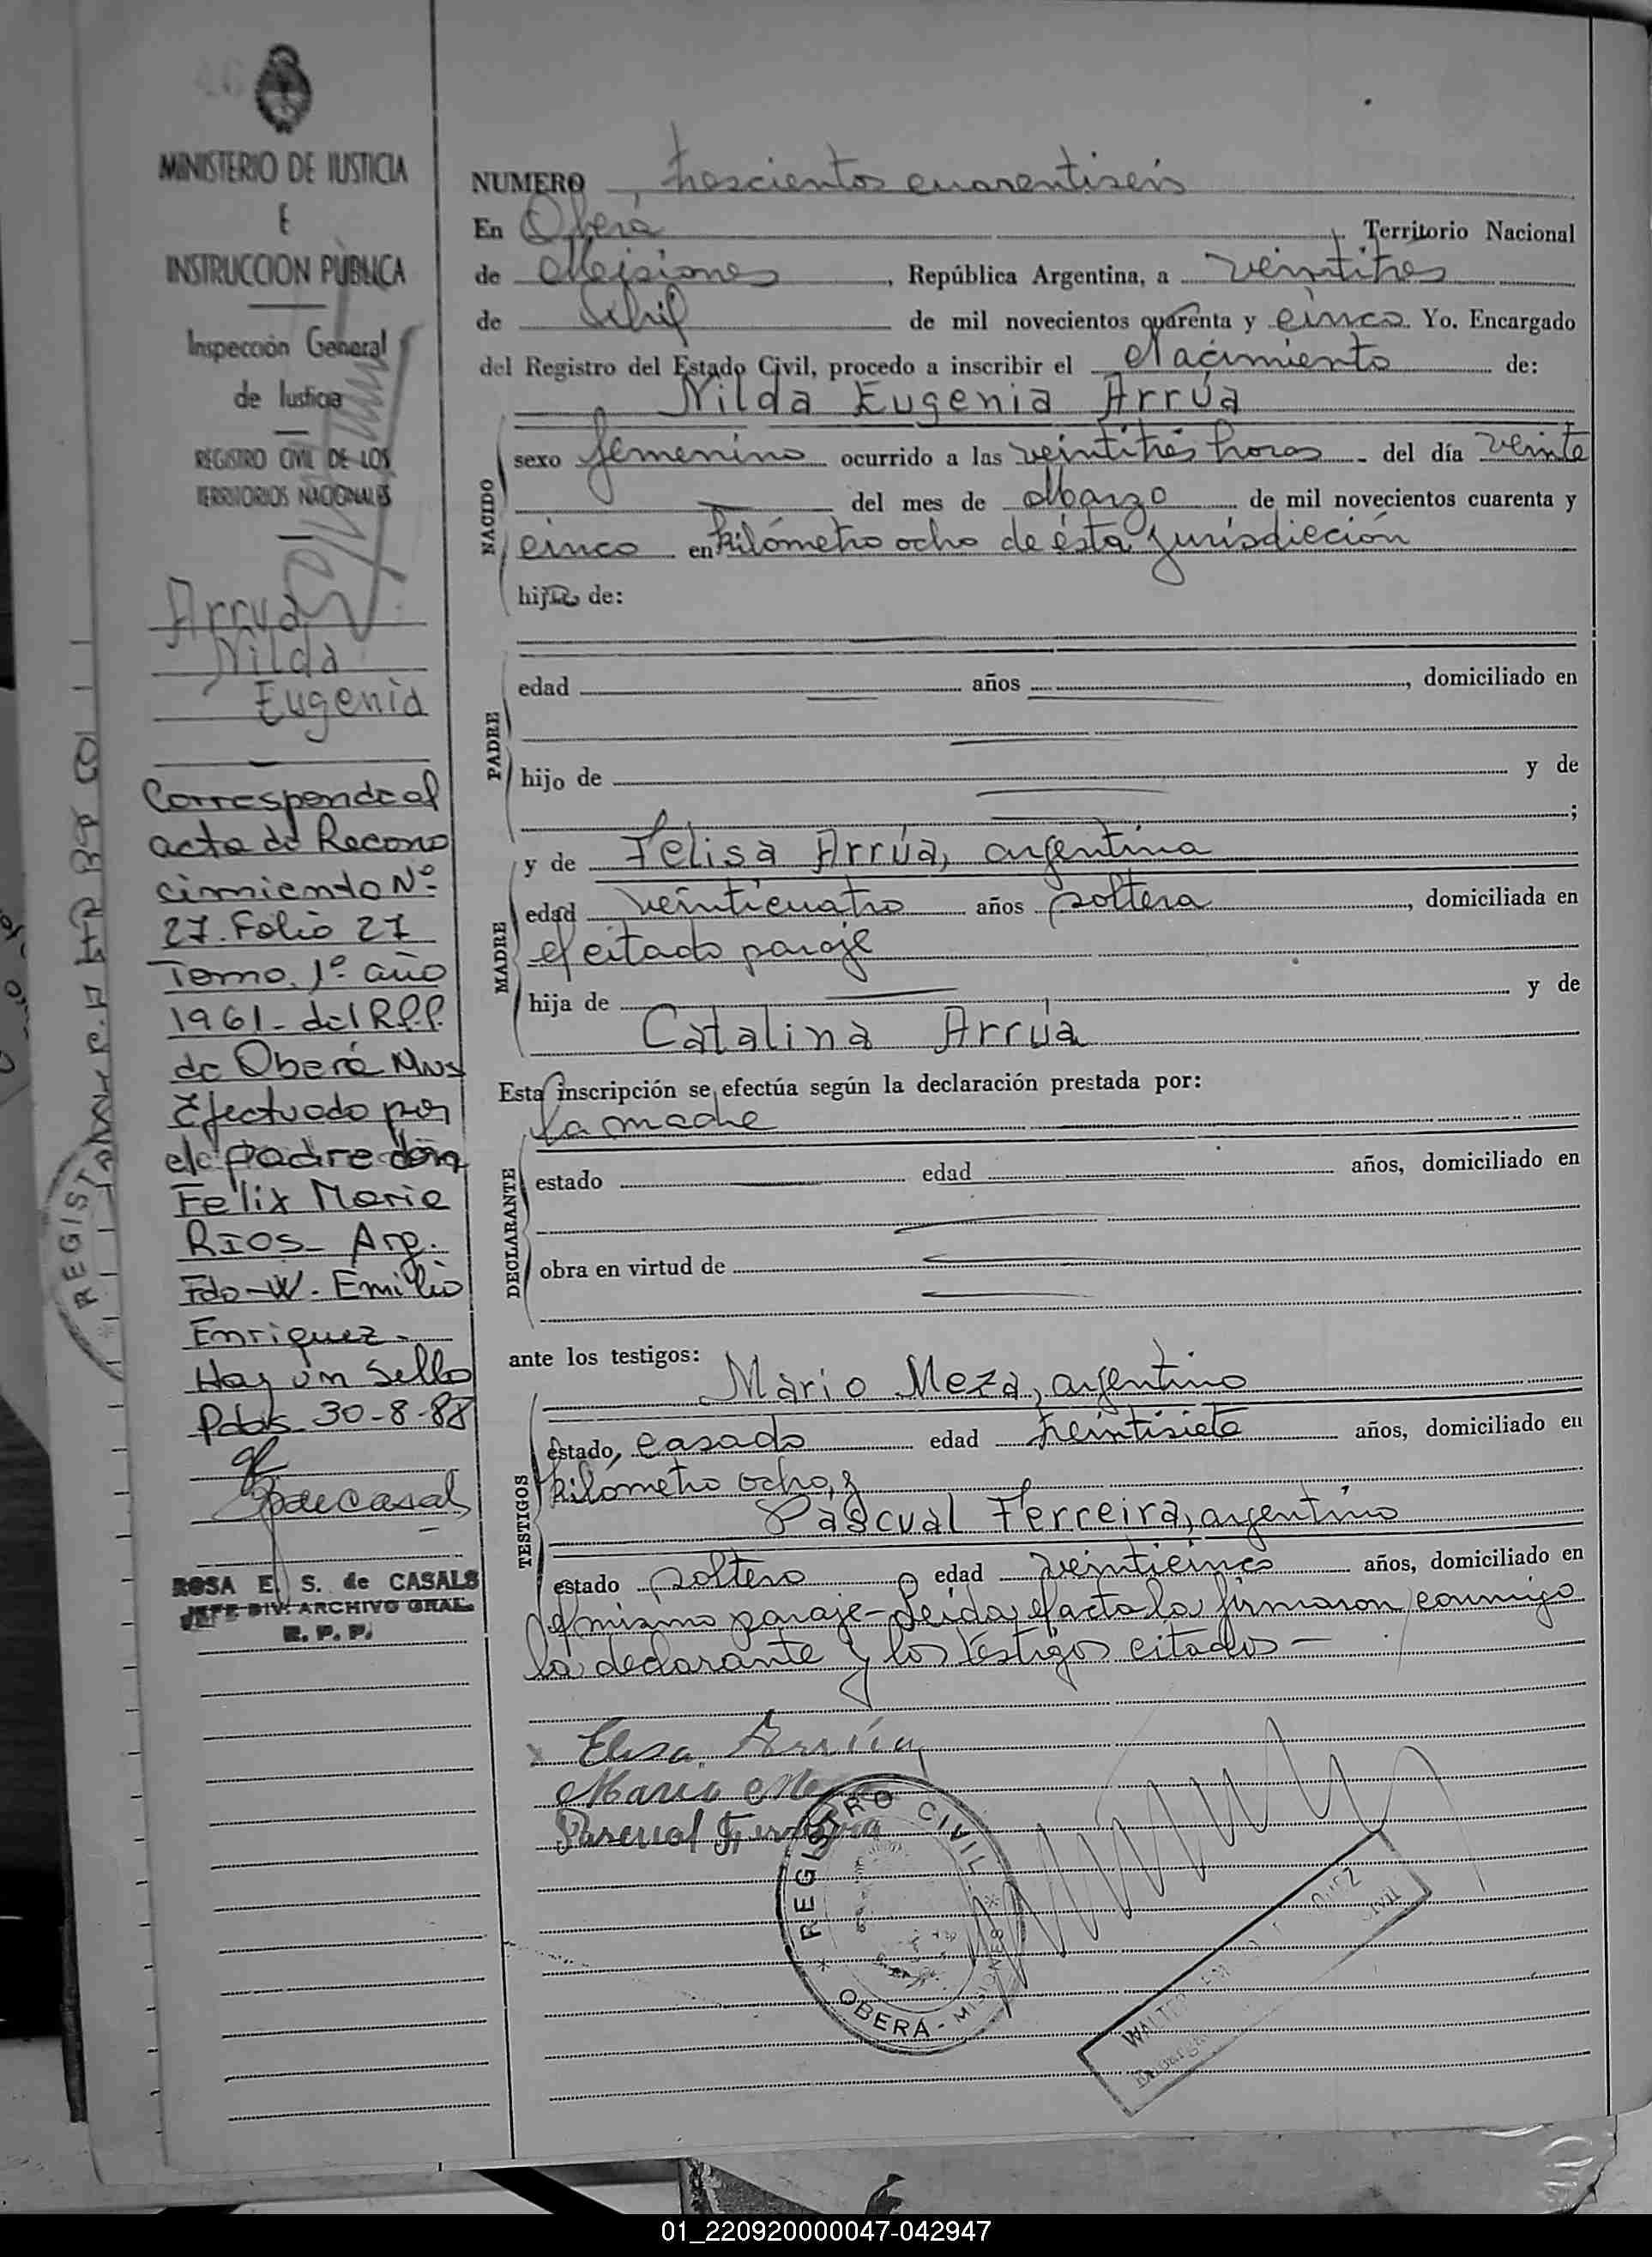 MINISTERIO DE JUSTICIA
E
INSTRUCCION PUBLICA
Inspección General
de Justicia
REGISTRO CIVIL DE LOS
TERRITORIOS NACIONALES
Arrua
Nilda
Eugenia
Corresponde al
acta de Recono
cimiento Nº
27. Folio 27
Tomo. 1º año
1961 - del R.P.P.
de Oberá Mnes
Efectuado por
el padre don
Felix Mario
RIOS - Arg.
Fdo - W. Emilio
Enriquez -
Hay un Sello
Pdas 30-8-88
ROSA E. S. de CASALS
JEFE DIV. ARCHIVO GRAL.
R. P. P.
NUMERO trescientos cuarentiseis
En Oberá Territorio Nacional
de Misiones, República Argentina, a veintitres
de Abril de mil novecientos cuarenta y cinco Yo. Encargado
del Registro del Estado Civil, procedo a inscribir el Nacimiento de:
Nilda Eugenia Arrúa
NACIDO
sexo femenino ocurrido a las veintitrés horas del día veinte
del mes de Marzo de mil novecientos cuarenta y
cinco en kilómetro ocho de ésta jurisdicción
hija de:
PADRE
edad años, domiciliado en
hijo de y de
;
MADRE
y de Felisa Arrúa, argentina
edad veinticuatro años soltera, domiciliada en
el citado paraje
hija de y de
Catalina Arrúa
Esta inscripción se efectúa según la declaración prestada por:
la madre
DECLARANTE
estado edad años, domiciliado en
obra en virtud de
ante los testigos:
Mario Meza, argentino
TESTIGOS
estado, casado edad treintisiete años, domiciliado en
kilómetro ocho, y
Pascual Ferreira, argentino
estado soltero edad veinticinco años, domiciliado en
el mismo paraje - Leída el acta la firmaron conmigo
la declarante y los testigos citados -
x Elisa Arrúa
Mario Meza
Pascual Ferreira
REGISTRO CIVIL
OBERÁ - MISIONES
01_220920000047-042947